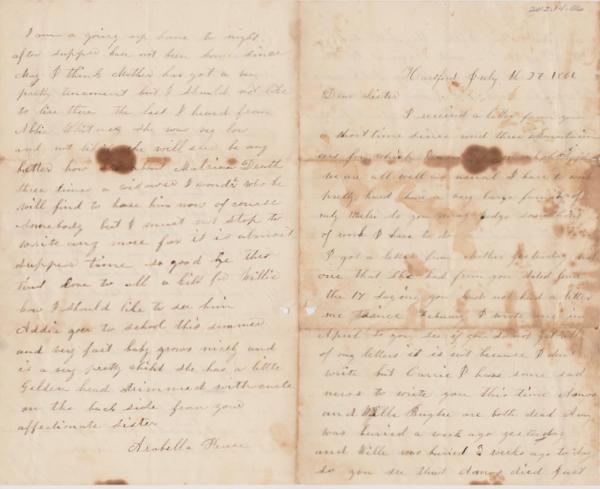 I am a going up home to night
after supper have not been home since
May I think Mother has got a very
pretty tenament but I should not like
to live there the last I heard from
Abbie Whitney she was very low
and not she will see be any
better how about Death
three times a widower I wonder who he
will find to have him now of course
Somebody but I must not stop to
write any more for it is almost
supper time so good bye this
time love to all a kiss for Willie
how I should like to see him
Addie goes to school this summer
and very fast baby grows nicely and
is a very pretty child she has a little
Golden head trimmed with curls
on the back side from your
affectionate sister
Arabella Pease
Hartford July
Dear Sister
I received a letter from you
a short time since and three
for which
we are all well as usual I have to work
pretty hard have a very large family of
only you may judge some
of work I have to do
I got a letter from Mother yesterday and
one that she had from you dated
the 17 saying you had not had a letter
me since I wrote you in
April so you see if you do not get
of my letters it is not because I don't
write but Carrie I have some sad
news to write you this time Amos
and Willie Bugbee are both dead Amos
was buried a week ago yesterday
and Willie was buried 3 weeks ago to day
so you see that Amos died just